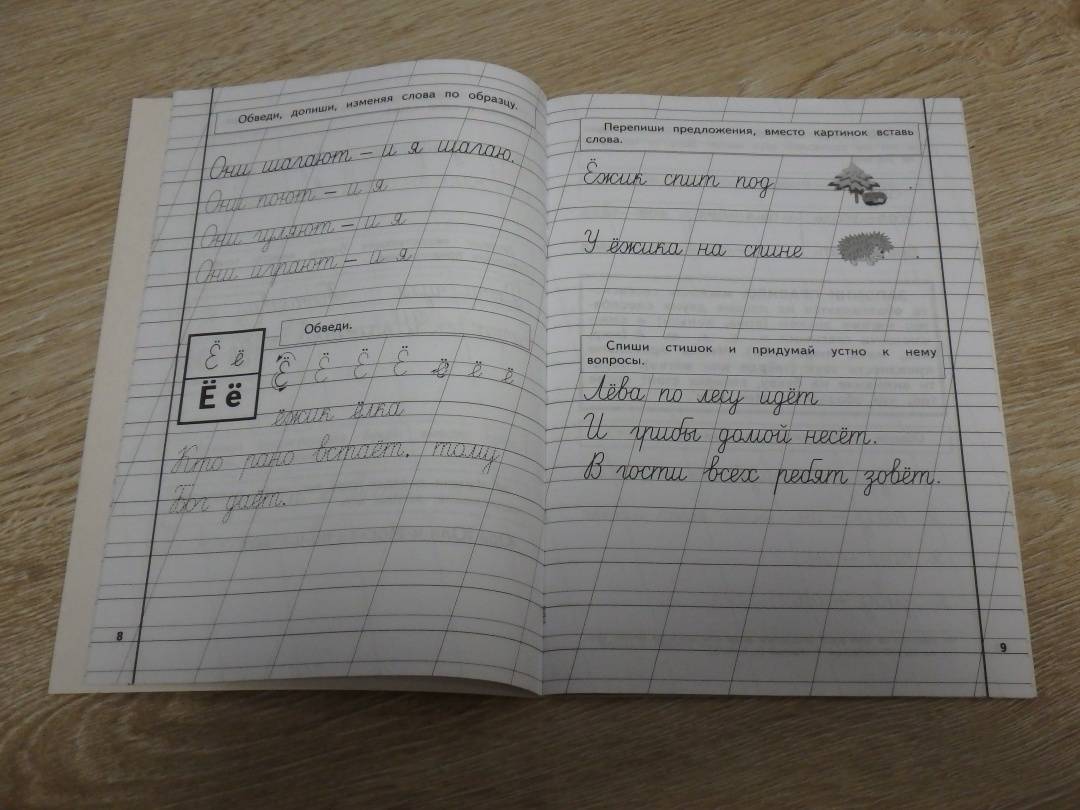 Обведи, допиши, изменяя слова по образцу.
Они шагают – и я шагаю.
Они поют – и я
Они гуляют – и я
Они играют – и я
Обведи.
Ё ё
Ё ё
Ё Ё Ё Ё ё ё ё
ёжик ёлка
Кто рано встаёт, тому
Бог даёт.
8
Перепиши предложения, вместо картинок вставь
слова.
Ёжик спит под .
У ёжика на спине .
Спиши стишок и придумай устно к нему
вопросы.
Лёва по лесу идёт
И грибы домой несёт.
В гости всех ребят зовёт.
9